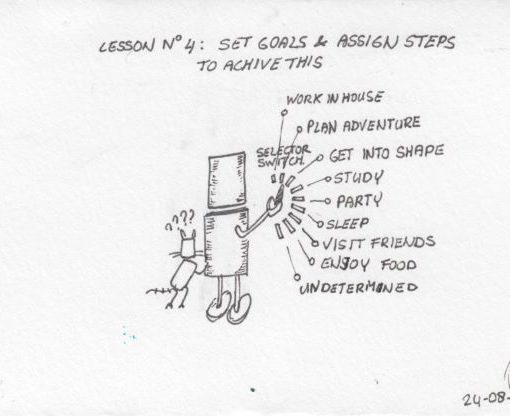 LESSON N° 4: SET GOALS & ASSIGN STEPS
TO ACHIVE THIS
WORK IN HOUSE
PLAN ADVENTURE
SELECTOR
SWITCH.
GET INTO SHAPE
STUDY
PARTY
SLEEP
VISIT FRIENDS
ENJOY FOOD
UNDETERMINED
????
24-08-